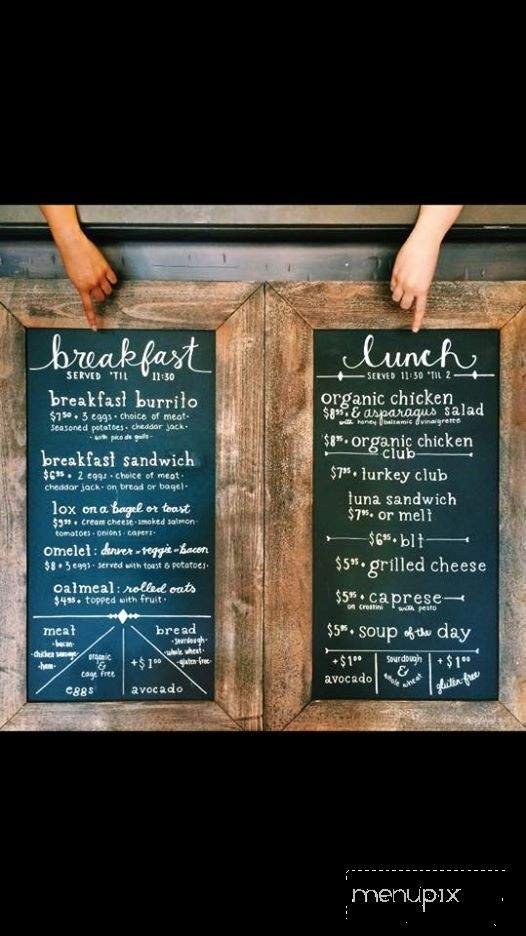 breakfast
SERVED 'TIL 11:30
breakfast burrito
$7⁵⁰ • 3 eggs • choice of meat •
seasoned potatoes • cheddar jack •
• with pico de gallo •
breakfast sandwich
$6⁹⁵ • 2 eggs • choice of meat •
cheddar jack • on bread or bagel •
lox on a bagel or toast
$9⁹⁵ • cream cheese • smoked salmon •
tomatoes • onions • capers •
omelet: denver - veggie - bacon
$8 • 3 eggs • served with toast & potatoes •
oatmeal: rolled oats
$4⁹⁵ • topped with fruit •
meat
• bacon •
• chicken sausage •
• ham •
organic
&
cage free
eggs
+$1⁰⁰
avocado
bread
• sourdough •
• whole wheat •
• gluten-free •
lunch
SERVED 11:30 'TIL 2
organic chicken
$8⁹⁵ • & asparagus salad
with honey balsamic vinaigrette
$8⁹⁵ • organic chicken
club
$7⁹⁵ • turkey club
tuna sandwich
$7⁹⁵ • or melt
$6⁹⁵ • blt
$5⁹⁵ • grilled cheese
$5⁹⁵ • caprese
on crostini with pesto
$5⁹⁵ • soup of the day
+$1⁰⁰
avocado
sourdough
&
whole wheat
+$1⁰⁰
gluten-free
menupix